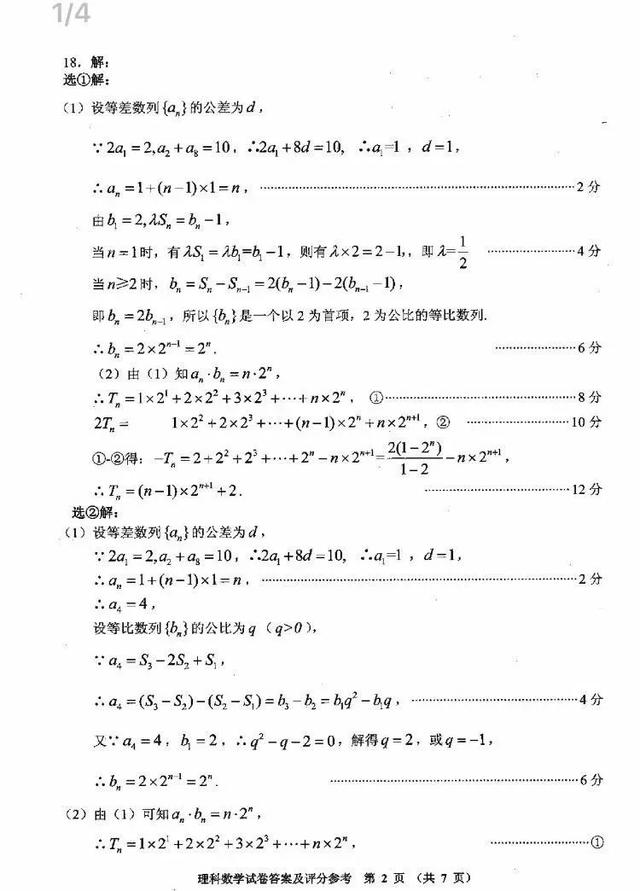 1/4
18. 解:
选①解:
(1) 设等差数列{aₙ}的公差为d,
∵2a₁=2,a₂+a₈=10, ∴2a₁+8d=10, ∴a₁=1, d=1,
∴aₙ=1+(n−1)×1=n, ……………………2分
由b₁=2,λSₙ=bₙ−1,
当n=1时,有λS₁=λb₁=b₁−1,则有λ×2=2−1,, 即λ=1/2 ……………4分
当n≥2时, bₙ=Sₙ−Sₙ₋₁=2(bₙ−1)−2(bₙ₋₁−1),
即bₙ=2bₙ₋₁, 所以{bₙ}是一个以2为首项,2为公比的等比数列.
∴bₙ=2×2ⁿ⁻¹=2ⁿ. ……………6分
(2) 由(1)知aₙ·bₙ=n·2ⁿ,
∴Tₙ=1×2¹+2×2²+3×2³+⋯+n×2ⁿ, ①……………………8分
2Tₙ= 1×2²+2×2³+⋯+(n−1)×2ⁿ+n×2ⁿ⁺¹,② ……………10分
①-②得:−Tₙ=2+2²+2³+⋯+2ⁿ−n×2ⁿ⁺¹=2(1−2ⁿ)/(1−2)−n×2ⁿ⁺¹,
∴Tₙ=(n−1)×2ⁿ⁺¹+2. ……………………12分
选②解:
(1) 设等差数列{aₙ}的公差为d,
∵2a₁=2,a₂+a₈=10, ∴2a₁+8d=10, ∴a₁=1, d=1,
∴aₙ=1+(n−1)×1=n, ……………………2分
∴a₄=4,
设等比数列{bₙ}的公比为q(q>0),
∵a₄=S₃−2S₂+S₁,
∴a₄=(S₃−S₂)−(S₂−S₁)=b₃−b₂=b₁q²−b₁q, ……………………4分
又∵a₄=4, b₁=2, ∴q²−q−2=0,解得q=2,或q=−1,
∴bₙ=2×2ⁿ⁻¹=2ⁿ. ……………………6分
(2) 由(1)可知aₙ·bₙ=n·2ⁿ,
∴Tₙ=1×2¹+2×2²+3×2³+⋯+n×2ⁿ, ……………①
理科数学试卷答案及评分参考 第 2 页 (共 7 页)